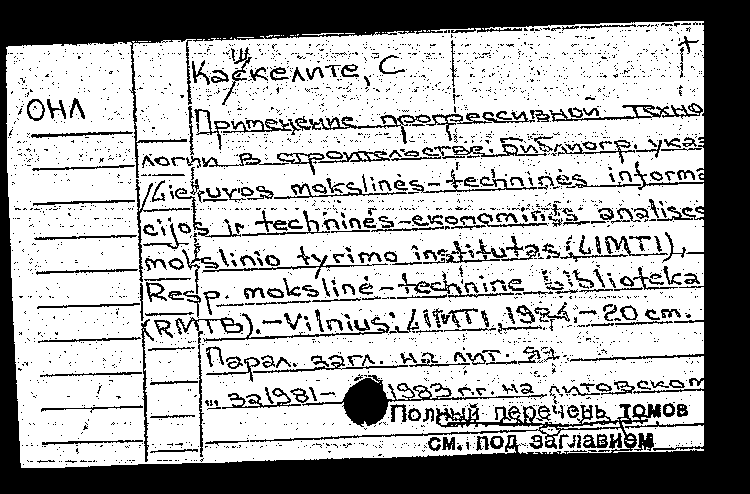 Каскелите, С
ш
ОНЛ
Применение прогрессивной техно
логии в строительстве: Библиогр. указ
/Lietuvos mokslinės-techninės informa
cijos ir techninės-ekonominės analisės
mokslinio tyrimo institutas (LIMTI),
Resp. mokslinė-technine biblioteka
(RMTB).-Vilnius: LIMTI, 1984.-20 cm.
Парал. загл. на лит. яз.
... за 1981- 1983 г.г. на литовском
Полный перечень томов
см. под заглавием